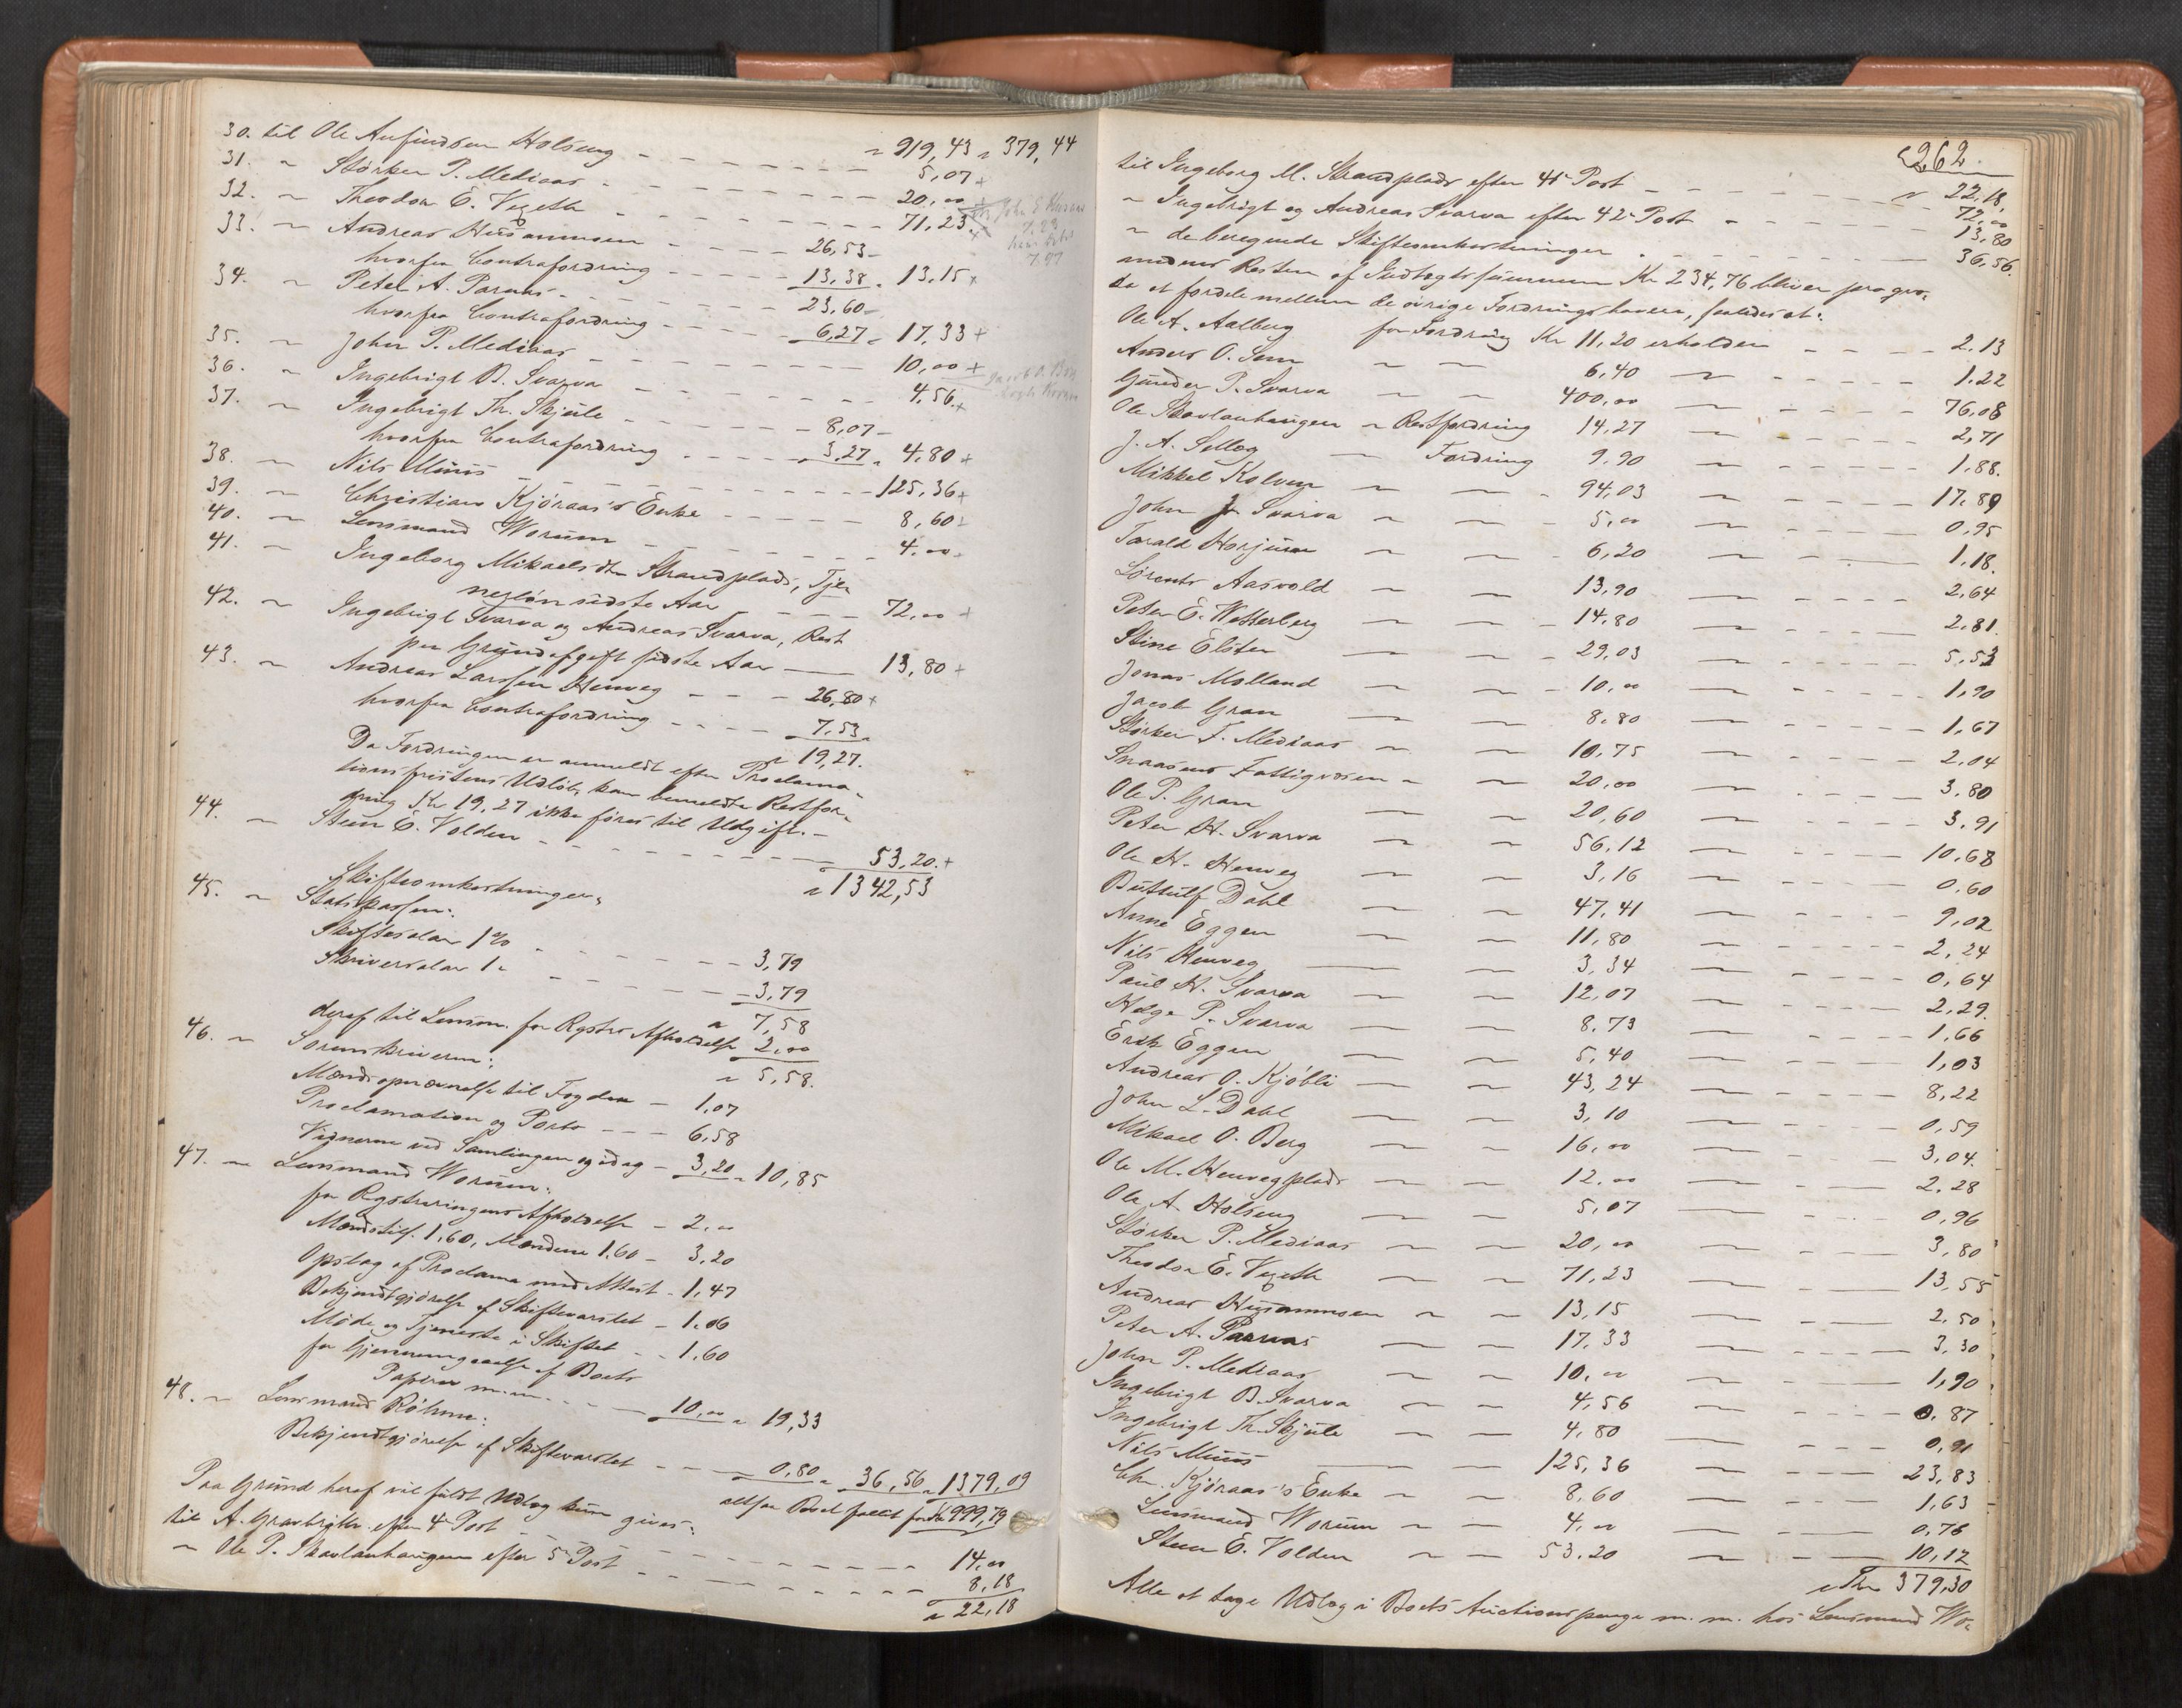 30. til Ole Anfindsen Holseng - - - - - - " 919,43 " 379,44
5,07 +
31. " Størker P. Mediaas - - - - - - 20,00 +
32. " Theodor E. Vegseth - - - - - 71,23 +
33. " Andreas Husmannsen - - - - 26,53
hvorfra Contrafordring - - - - - 13,38 " 13,15 +
34. " Peter A. Parnas - - - - - 23,60
hvorfra Contrafordring - - - - 6,27 " 17,33 +
35. " John P. Mediaas - - - - - - 10,00 +
36. " Ingebrigt B. Svarva - - - - - - 4,56 +
37. " Ingebrigt Th. Skjule - - - - - 8,07
hvorfra Contrafordring - - - - 3,27 " 4,80 +
38. " Nils Muus - - - - - - 125,36 +
39. " Christian Kjóraas's Enke - - - - - 8,60 +
40. " Lensmand Worum - - - - - - 4,00
41. " Ingeborg Mikaelsdtr Strandplads, Tje-
nesløn sidste Aar - - - - 72,00 +
42. " Ingebrigt Svarva og Andreas Svarva, Rest
paa Grundafgift sidste Aar — 13,80 +
43. " Andreas Larssen Henveg - - - 26,80 +
hvorfra Contrafordring - - - - 7,53
" 19,27.
Da Fordringen er anmeldt efter Proclama-
tionsfristens Udløb, kan bemeldte Restfor-
dring Kr 19,27 ikke føres til Udgift. -
44. " Steen E. Volden - - - - - - - 53,20. +
" 1342,53
Skifteomkostninger.
45. " Statskassen:
Skiftesalær 1% - - - - - - 3,79
Skriversalær 1 " - - - - - 3,79
" 7,58
deraf til Lensm. for Rgstrs Afholdelse 2,00
" 5,58.
46. " Sorenskriveren:
Mandsopnævnelse til Fogden — 1,07
Proclamation og Porto - - - 6,58
Vidnerne ved Samlingen og idag - 3,20 " 10,85
47. " Lensmand Worum:
for Rgstreringens Afholdelse - 2,00
Mandstilf. 1,60, Mændene 1,60 - 3,20
Opslag af Proclama med Attest - 1,47
Bekjendtgjørelse af Skiftevarslet - 1,06
Møde og Tjeneste i Skiftet - - 1,60
for Gjennemgaaelse af Boets
Papirer m. m. - - - - 10,00 " 19,33
48. " Lensmand Röhme:
Bekjendtgjørelse af Skiftevarslet - - - 0,80 " 36,56 " 1379,09
altsaa Boet fallit for Kr 999,79
Paa Grund heraf vil fuldt Udlæg kun gives:
til A. Gravbrøth efter 4de Post - - - - - - - - 14,00
" Ole P. Skavlanhaugen efter 5te Post - - - - - - - 8,18
" 22,18
262.
til Ingeborg M. Strandplads efter 41de Post - - - - - " 22,18,
72,00
" Ingebrigt og Andreas Svarva efter 42de Post - - - - - 13,80
" de beregnede Skifteomkostninger - - - - - 36,56.
medens Resten af Indtægtssummen Kr 234,76 bliver pro qvo-
ta at fordele mellem de øvrige Fordringshavere, saaledes at:
Ole A. Aalberg for Fordring Kr 11,20 erholder - - - - 2,13
Anders O. Sem " " 6,40 " - - - - - 1.22
Gunder P. Svarva " " 400,00 — - - - - 76,08
Ole Skavlanhaugen " Restfordring 14,27 — - - - - 2,71
J. A. Selleg — Fordring 9,90 — - - - - 1,88.
Mikkel Kolven " — 94,03 — - - - - 17.89
John J. Svarva " — 5,00 — - - - - 0,95
Tarald Horjuen " — 6,20 — - - - - 1,18.
Lorents Aasvold " — 13,90 — - - - - 2,64
Peter E. Wetterberg — — 14,80 — - - - - 2,81.
Stine Elsten — — 29,03 — - - - - 5,53
Jonas Molland — — 10,00 — - - - - 1,90
Jacob Gran — — 8,80 — - - - - 1,67
Størker F. Mediaas " — 10,75 — - - - - 2,04
Snaasens Fattigvæsen " — 20,00 — - - - - 3,80
Ole P. Gran — — 20,60 — - - - - 3,91
Peter H. Svarva " — 56,12 — - - - - 10,68
Ole H. Henveg — " 3,16 — - - - - 0,60
Buttulf Dahl — " 47,41 — - - - - 9,02
Anne Eggen — " 11,80 — - - - - 2,24
Nils Henveg — — 3,34 — - - - - 0,64
Paul H. Svarva — — 12,07 — - - - - 2,29.
Helge P. Svarva — — 8,73 — - - - - 1,66
Erik Eggen — — 5,40 — - - - - 1,03
Andreas O. Kjøbli — — 43,24 — - - - - 8,22
John L. Dahl — — 3,10 — - - - - 0,59
Mikael O. Berg — " 16,00 — - - - - 3,04.
Ole M. Henvegplads — — 12,00 — - - - - 2.28
Ole A. Holseng — — 5,07 — - - - - 0,96
Størker P. Mediaas " — 20,00 — - - - - 3,80
Theodor E. Vegseth — " 71,23 — - - - - 13,55
Andreas Husmannsen " " 13,15 — - - - - 2,50
Peter A. Parnas — — 17,33 — - - - - 3,30
John P. Mediaas — " 10,00 — - - - - 1,90
Ingebrigt B. Svarva " — 4,56 — - - - - 0,87
Ingebrigt Th. Skjule — — 4,80 — - - - - 0,91
Nils Muus — — 125,36 — - - - - 23,83
Chr. Kjóraas's Enke " — 8,60 — - - - - 1,63
Lensmand Worum " — 4,00 — - - - - 0,76
Steen E. Volden " — 53,20 — - - - - 10,12
" Kr 379,30
Alle at tage Udlæg i Boets Auctionspenge m. m. hos Lensmand Wo-